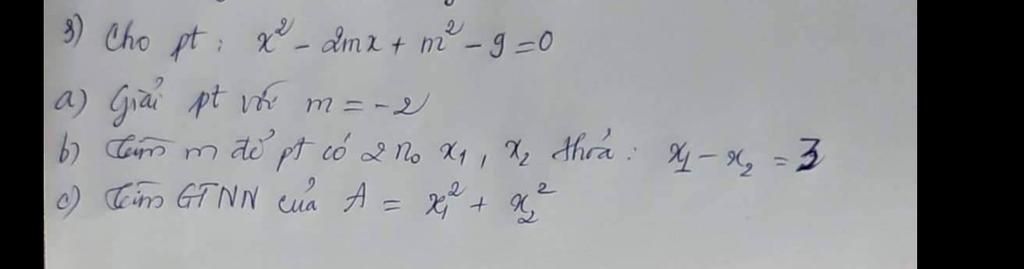 3) Cho pt : x² - 2mx + m² - 9 = 0
a) Giải pt với m = -2
b) Tìm m để pt có 2 no x₁, x₂ thỏa : x₁ - x₂ = 3
c) Tìm GTNN của A = x₁² + x₂²